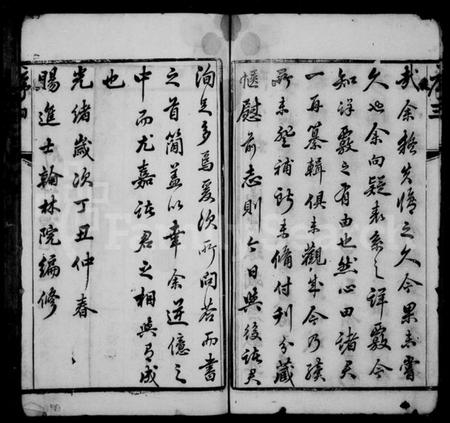 哉余猶先悟之久今果去嘗
久也余向疑表系之詳覈今
知詳覈之有由也然心田諸君
一再纂輯俱未觀成今乃續
所未登補所未備付剞分藏
愜慰前志則今日與後諸君
洵足多焉爰次所問荅而書
之首簡蓋以幸余逆億之
中而尤嘉諸君之相與有成
也
光緒歲次丁丑仲春
賜進士翰林院編修